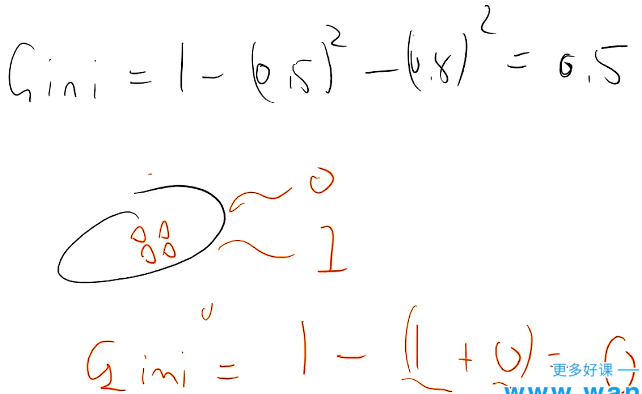 Gini = 1 - (0.5)² - (0.8)² = 0.5
0
1
Gini = 1 - (1 + 0) = 0
更多好课
www.wan